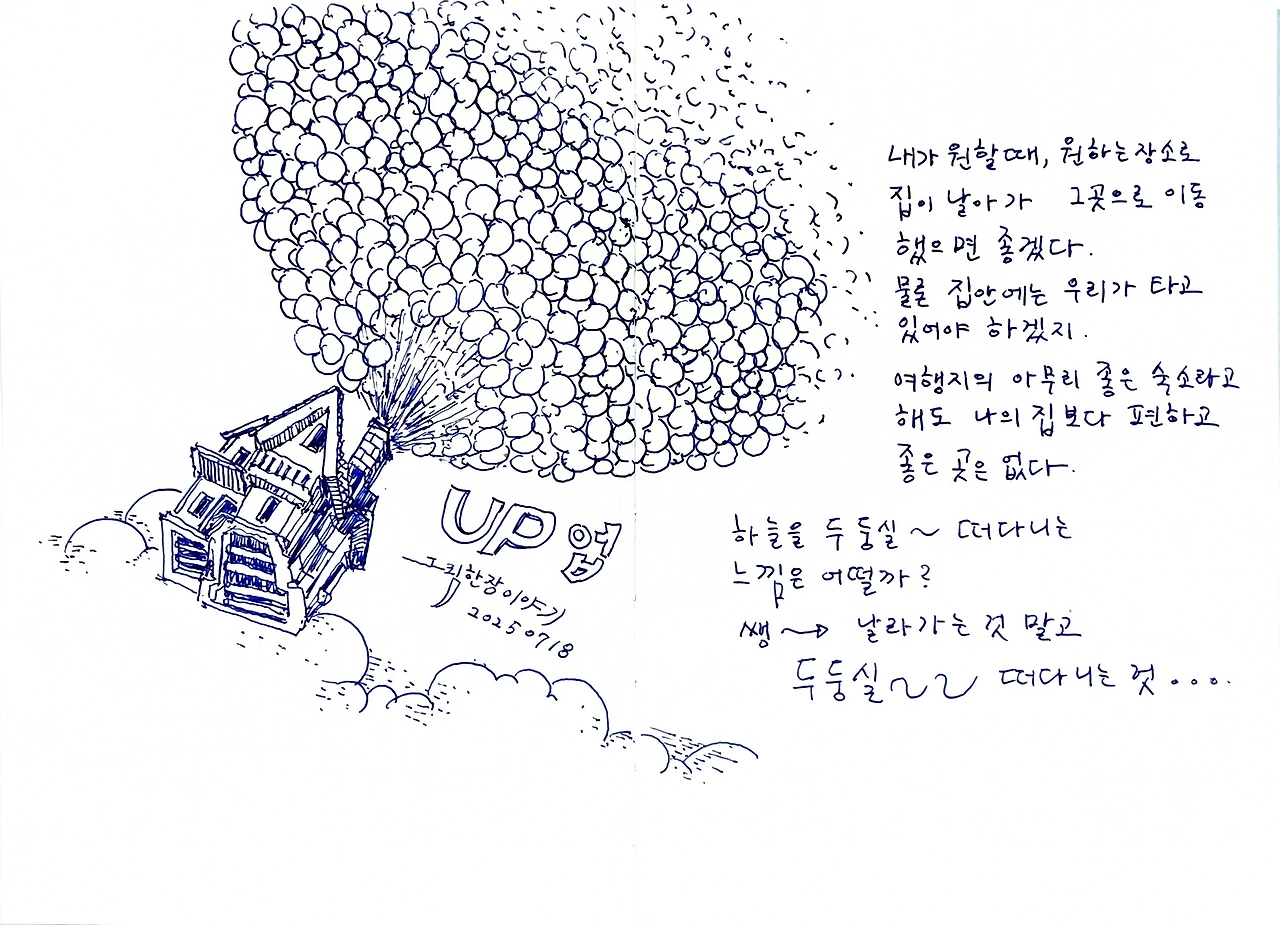 내가 원할때, 원하는장소로
집이 날아가 그곳으로 이동
했으면 좋겠다.
물론 집안에는 우리가 타고
있어야 하겠지.
여행지의 아무리 좋은 숙소라고
해도 나의 집보다 편하고
좋은 곳은 없다.
UP 업
그림한장이야기
20250718
하늘을 두둥실~ 떠다니는
느낌은 어떨까?
쌩~→ 날라가는 것 말고
두둥실~~ 떠다니는 것...